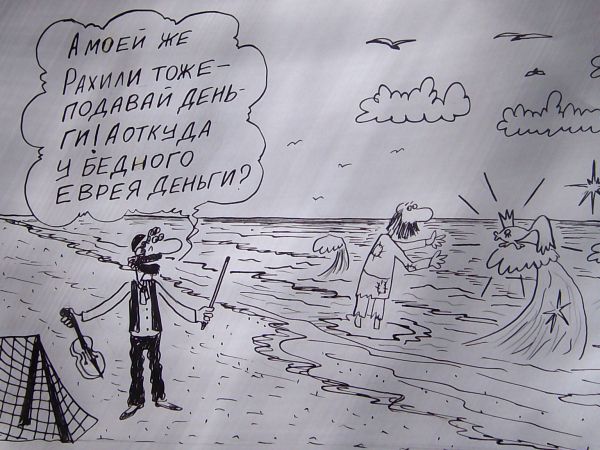 А МОЕЙ ЖЕ
РАХИЛИ ТОЖЕ-
ПОДАВАЙ ДЕНЬ-
ГИ! А ОТКУДА
У БЕДНОГО
ЕВРЕЯ ДЕНЬГИ?